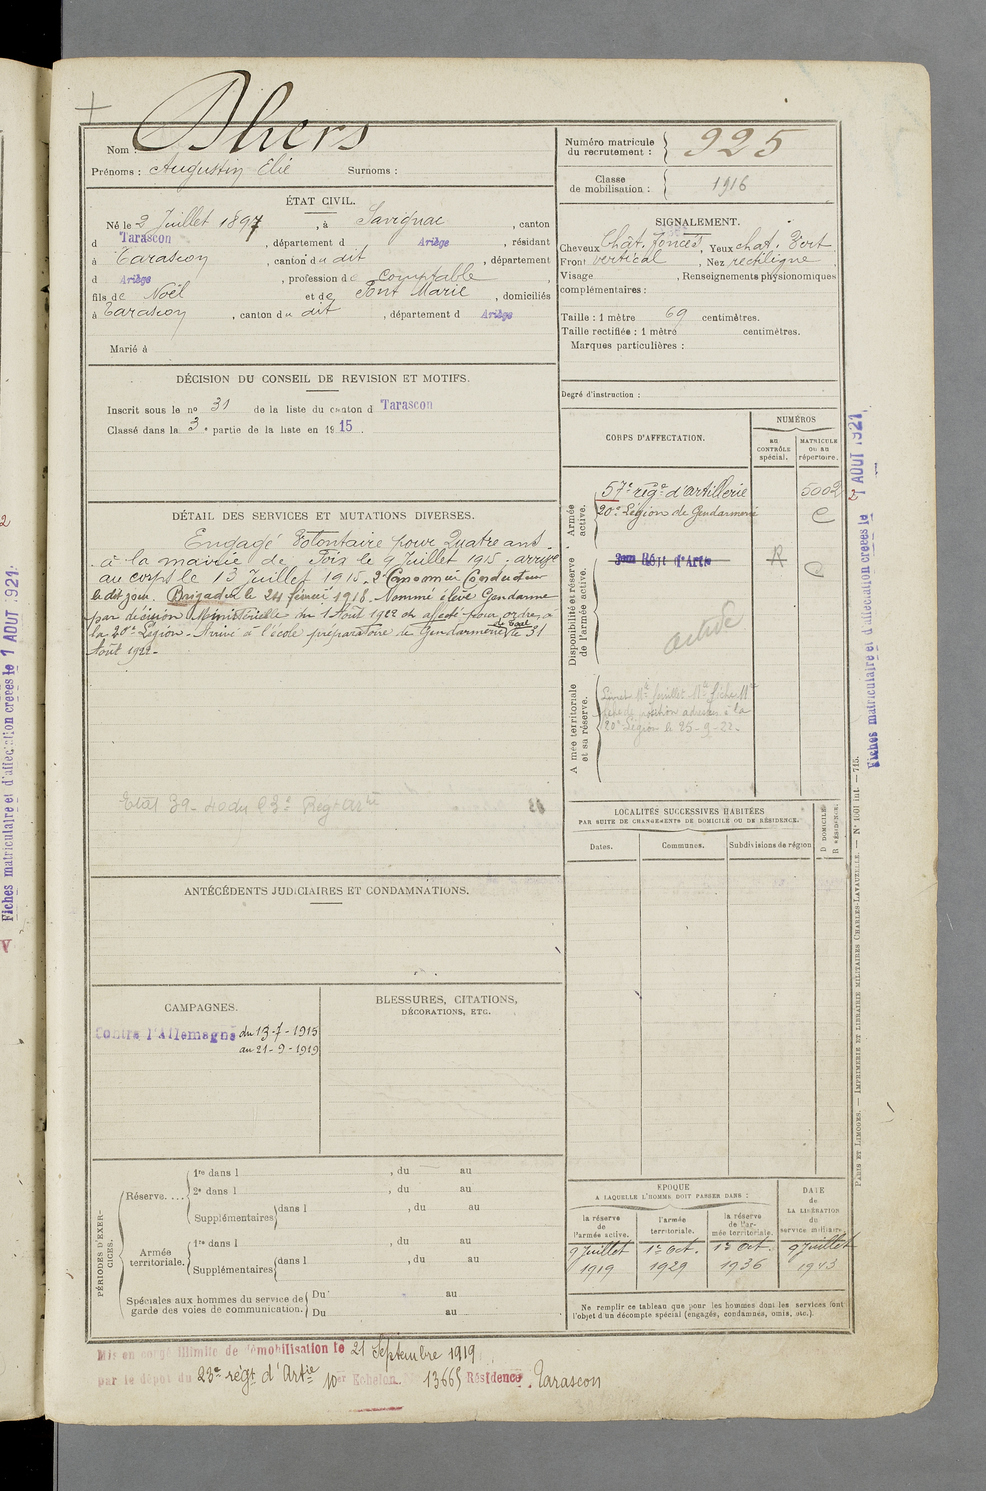 Dhers
Nom :
Prénoms : Augustin Elie Surnoms :
Numéro matricule du recrutement : 925
Classe de mobilisation : 1916
ÉTAT CIVIL.
Né le 2 Juillet 1897, à Savignac, canton
d Tarascon, département d Ariège, résidant
à Tarascon, canton du dit, département
d Ariège, profession de comptable
fils de Noël et de Pont Marie, domiciliés
à Tarascon, canton du dit, département d Ariège
Marié à
SIGNALEMENT.
Cheveux Chât. foncés, Yeux chat. Vert
Front vertical, Nez rectiligne
Visage , Renseignements physionomiques
complémentaires :
Taille : 1 mètre 69 centimètres.
Taille rectifiée : 1 mètre centimètres.
Marques particulières :
Degré d'instruction :
DÉCISION DU CONSEIL DE REVISION ET MOTIFS.
Inscrit sous le no 31 de la liste du canton d Tarascon
Classé dans la 3e partie de la liste en 1915.
DÉTAIL DES SERVICES ET MUTATIONS DIVERSES.
Engagé Volontaire pour Quatre ans
à la mairie de Foix le 9 Juillet 1915, arrivé
au corps le 13 Juillet 1915. 2e Canonnier Conducteur
le dit jour. Brigadier le 24 février 1918. Nommé élève Gendarme
par décision Ministérielle du 1 Août 1922 et affecté pour ordre à
la 20e Légion. Arrivé à l'école préparatoire de Gendarmerie de Toul le 31
Août 1922.
Etat 39-40 du
CORPS D'AFFECTATION.
NUMÉROS
au CONTRÔLE spécial.
MATRICULE ou au répertoire.
Armée active.
57e régt d'artillerie 5002
20e Légion de Gendarmerie
Disponibilité et réserve de l'armée active.
Régt d'Artie
active
Armée territoriale et sa réserve.
Livret Mle feuillet Mle fiche Mle
position adressés à la
20e Légion le 25-9-22.
LOCALITÉS SUCCESSIVES HABITÉES
PAR SUITE DE CHANGEMENTS DE DOMICILE OU DE RÉSIDENCE.
Dates. Communes. Subdivisions de région
D DOMICILE.
R RÉSIDENCE.
ANTÉCÉDENTS JUDICIAIRES ET CONDAMNATIONS.
CAMPAGNES.
Contre l'Allemagne du 13-7-1915
au 21-9-1919
BLESSURES, CITATIONS,
DÉCORATIONS, ETC.
PÉRIODES D'EXERCICES.
Réserve....
1re dans l , du au
2e dans l , du au
Supplémentaires dans l , du au
Armée territoriale.
1re dans l , du au
Supplémentaires dans l , du au
Spéciales aux hommes du service de
garde des voies de communication.
Du au
Du au
EPOQUE
A LAQUELLE L'HOMME DOIT PASSER DANS :
la réserve de l'armée active.
l'armée territoriale.
la réserve de l'armée territoriale.
DATE de LA LIBÉRATION du service militaire.
9 Juillet 1919
1er Oct. 1929
1er Oct. 1936
9 Juillet 1943
Ne remplir ce tableau que pour les hommes dont les services font
l'objet d'un décompte spécial (engagés, condamnés, omis, etc.).
Mis en congé illimité de démobilisation le 21 Septembre 1919
par le dépôt du 23e régt d'Artie 10e Echelon. 13665 Résidence Tarascon
Fiches matriculaire et d'affectation créées le 1 AOUT 1921
PARIS ET LIMOGES. — IMPRIMERIE ET LIBRAIRIE MILITAIRES CHARLES-LAVAUZELLE. — No 1001 int. — 715.
Fiches matriculaire et d'affectation créées le 1 AOUT 1921.